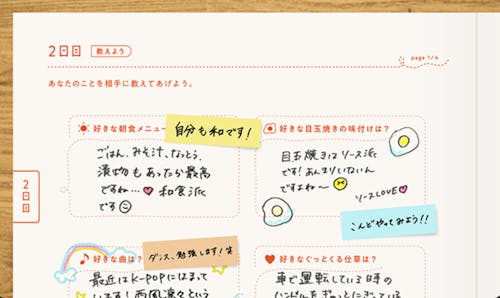 2日目 教えよう
page 1/4
あなたのことを相手に教えてあげよう。
好きな朝食メニュー
自分も和です!
ごはん、みそ汁、なっとう、
漬物もあったか最高
ですね…♥和食派
です
好きな目玉焼きの味付けは?
目玉焼きはソース派
です!あんまりいないん
ですよね〜
ソースLOVE♥
こんどやってみよう!!
2日目
好きな曲は?
ダンス、勉強します!笑
最近はK-POPにはまって
いるる!雨風凛々という
好きなぐっとくる仕草は?
車で運転している時の
ハンドルをぎゅっとにぎっている